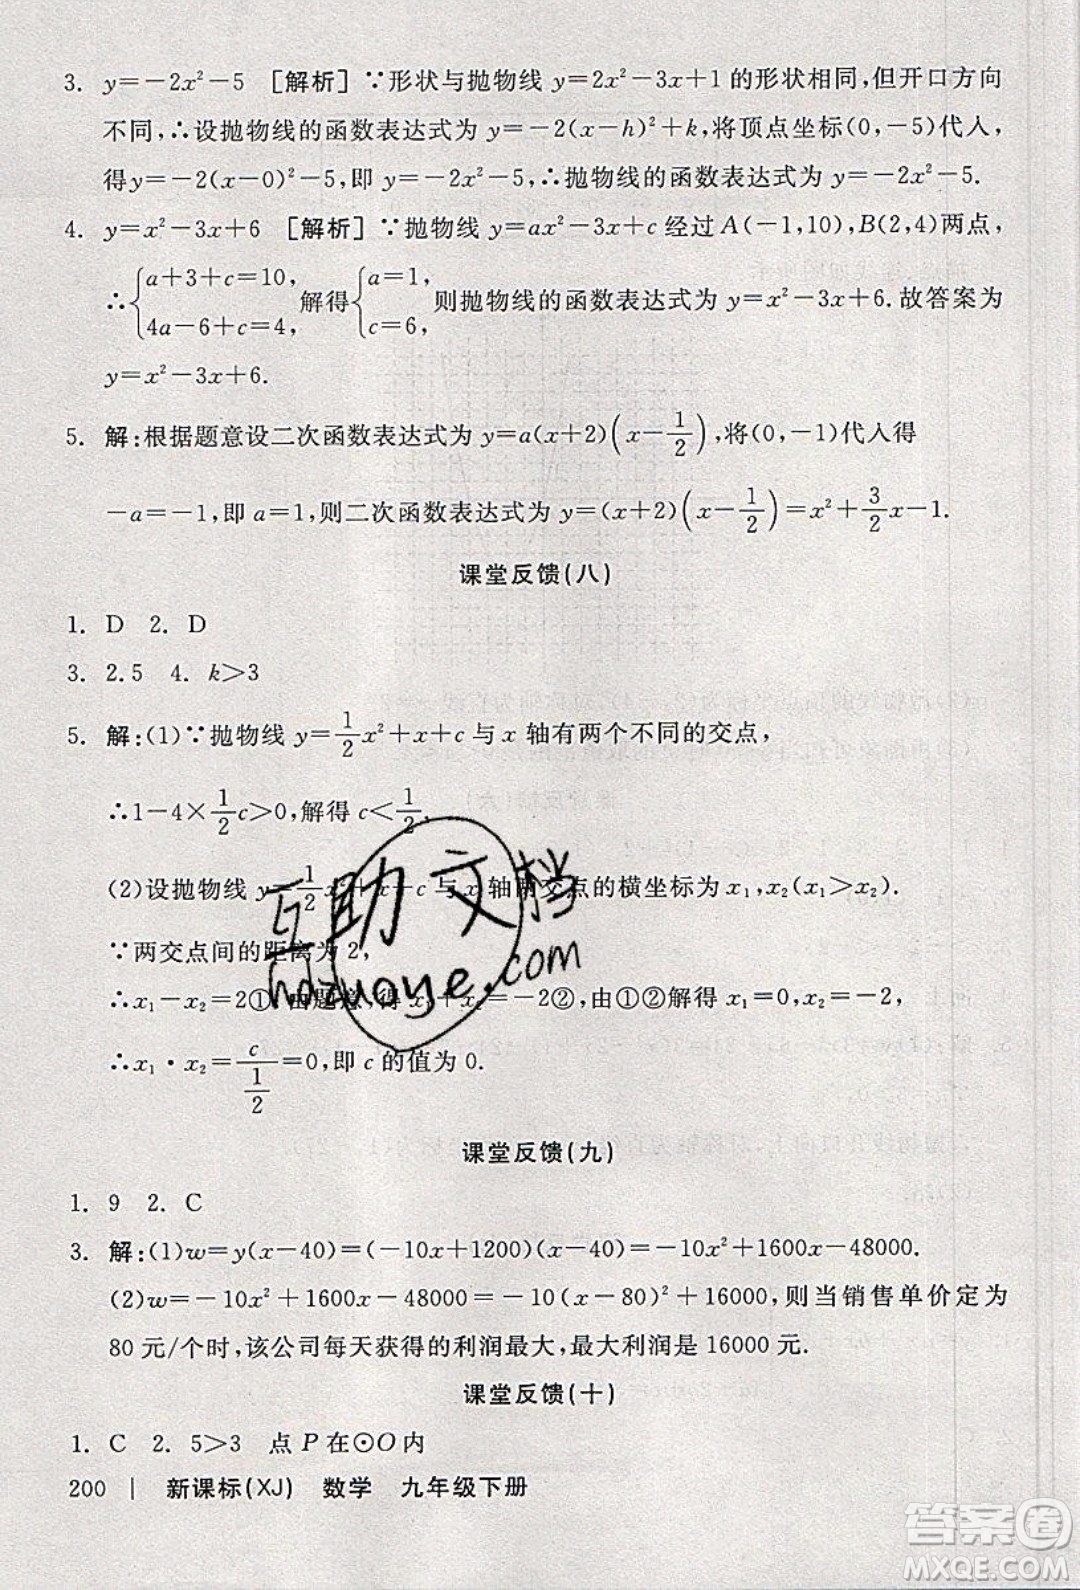 3. y=-2x²-5 [解析]∵形状与抛物线 y=2x²-3x+1的形状相同,但开口方向
不同,∴设抛物线的函数表达式为 y=-2(x-h)²+k,将顶点坐标(0,-5)代入,
得y=-2(x-0)²-5,即 y=-2x²-5,∴抛物线的函数表达式为 y=-2x²-5.
4. y=x²-3x+6 [解析]∵抛物线 y=ax²-3x+c 经过 A(-1,10),B(2,4)两点,
∴{a+3+c=10, 4a-6+c=4, 解得{a=1, c=6, 则抛物线的函数表达式为 y=x²-3x+6.故答案为
y=x²-3x+6.
5. 解:根据题意设二次函数表达式为 y=a(x+2)(x-1/2),将(0,-1)代入得
-a=-1,即 a=1,则二次函数表达式为 y=(x+2)(x-1/2)=x²+3/2x-1.
课堂反馈(八)
1. D 2. D
3. 2.5 4. k>3
5. 解:(1)∵抛物线 y=1/2x²+x+c 与 x 轴有两个不同的交点,
∴1-4×1/2c>0,解得 c<1/2.
(2)设抛物线 y=1/2x²+x+c 与 x 轴两交点的横坐标为 x₁,x₂(x₁>x₂).
∵两交点间的距离为 2,
∴x₁-x₂=2①,由题意,得 x₁+x₂=-2②,由①②解得 x₁=0,x₂=-2,
∴x₁·x₂=c/(1/2)=0,即 c 的值为 0.
互助文档
hdzuoye.com
课堂反馈(九)
1. 9 2. C
3. 解:(1)w=y(x-40)=(-10x+1200)(x-40)=-10x²+1600x-48000.
(2)w=-10x²+1600x-48000=-10(x-80)²+16000,则当销售单价定为
80 元/个时,该公司每天获得的利润最大,最大利润是 16000 元.
课堂反馈(十)
1. C 2. 5>3 点 P 在⊙O 内
200 | 新课标(XJ) 数学 九年级下册
答案圈
MXQE.COM